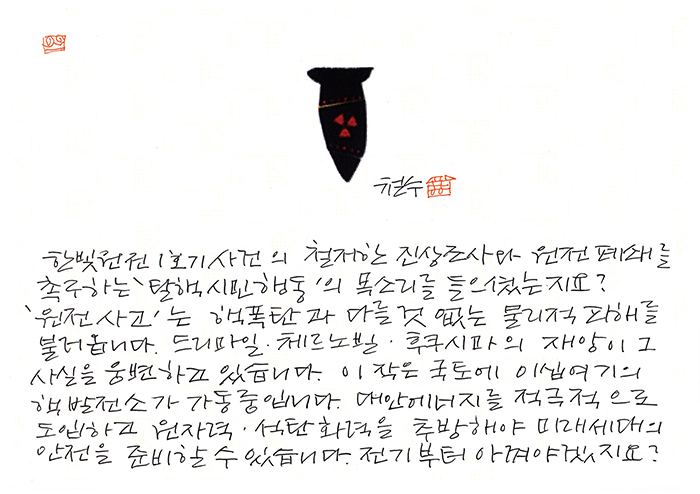 철수
한빛원전 1호기사건의 철저한 진상조사와 원전폐쇄를
촉구하는 '탈핵시민행동'의 목소리를 들으셨는지요?
'원전사고'는 핵폭탄과 다를것 없는 물리적 파해를
불러옵니다. 드리마일·체르노빌·후쿠시마의 재앙이 그
사실을 웅변하고 있습니다. 이 작은 국토에 이십여기의
핵발전소가 가동중입니다. 대안에너지를 적극적으로
도입하고 원자력·석탄화력을 추방해야 미래세대의
안전을 준비할 수 있습니다. 전기부터 아껴야겠지요?